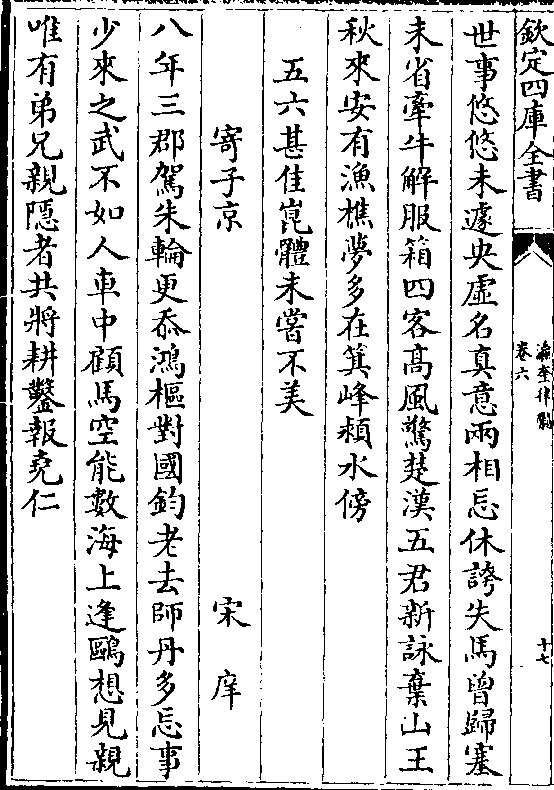 欽定四庫全書
瀛奎律髓
卷六
十七
世事悠悠未遽央虛名真意兩相忘休誇失馬曾歸塞
未省牽牛解服箱四客高風驚楚漢五君新詠棄山王
秋來安有漁樵夢多在箕峰潁水傍
五六甚佳崑體未嘗不美
寄子京 宋庠
八年三郡駕朱輪更忝鴻樞對國鈞老去師丹多忘事
少來之武不如人車中顧馬空能數海上逢鷗想見親
唯有弟兄親隱者共將耕鑿報堯仁